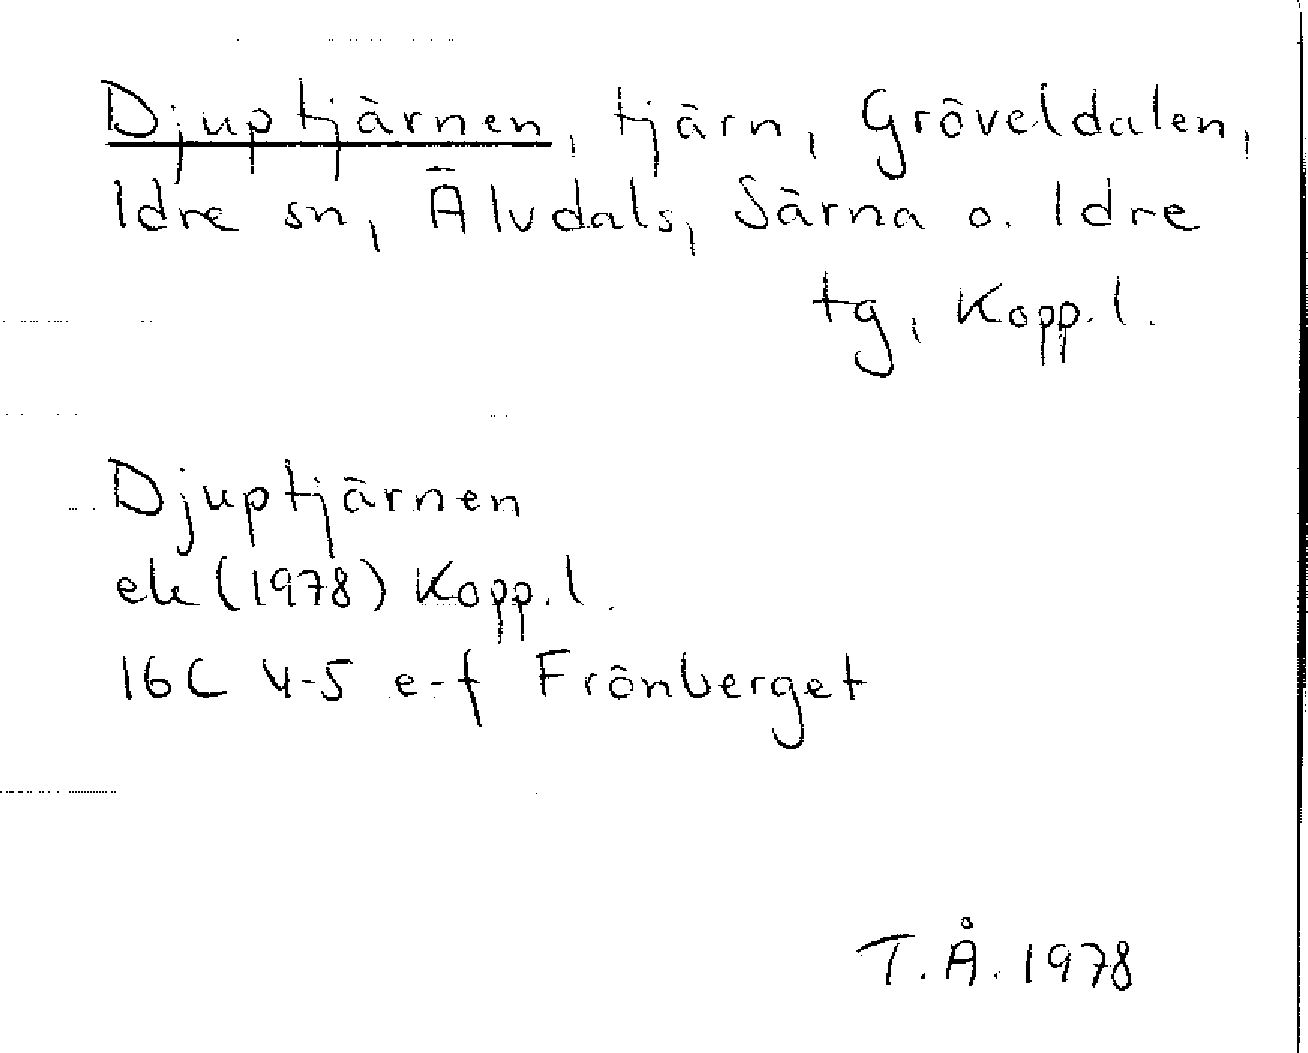 Djuptjärnen, tjärn, Gröveldalen,
Idre sn, Älvdals, Särna o. Idre
tg, Kopp. l.
Djuptjärnen
ek (1978) Kopp. l.
16C 4-5 e-f Frönberget
T. Å. 1978